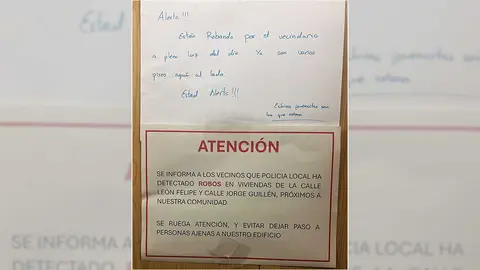 Alerta!!!
Están Robando por el vecindario
a plena luz del día Ya son varios
pisos aquí al lado
Estad Alerta!!!
que roban
ATENCIÓN
SE INFORMA A LOS VECINOS QUE POLICIA LOCAL HA
DETECTADO ROBOS EN VIVIENDAS DE LA CALLE
LEON FELIPE Y CALLE JORGE GUILLÉN, PRÓXIMOS A
NUESTRA COMUNIDAD
SE RUEGA ATENCIÓN, Y EVITAR DEJAR PASO A
PERSONAS AJENAS A NUESTRO EDIFICIO